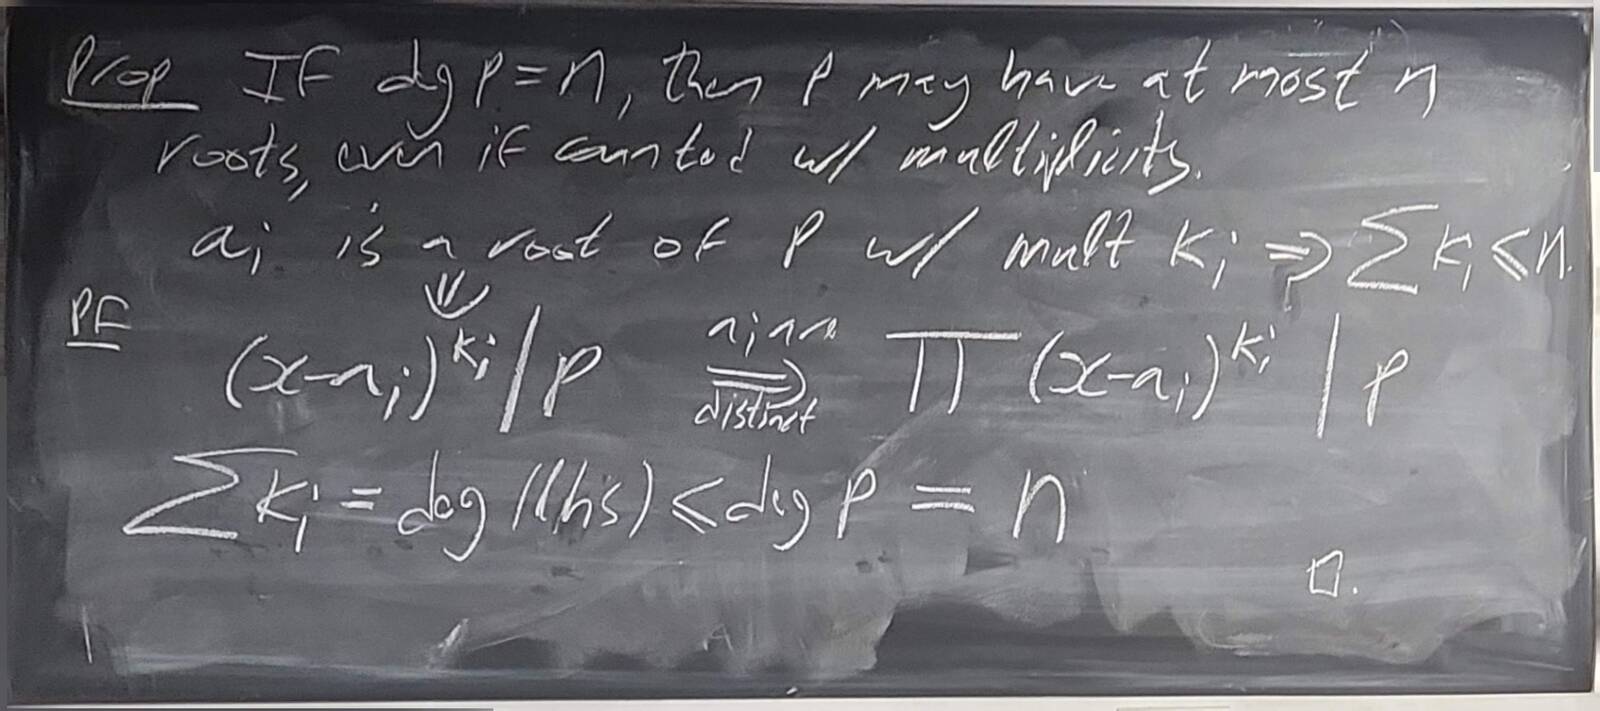 Prop If deg p = n, then p may have at most n
roots, even if counted w/ multiplicity.
a_i is a root of p w/ mult k_i ⇒ ∑ k_i ≤ n.
⇓
Pf (x-a_i)^{k_i} | p ⟹ a_i are distinct ∏ (x-a_i)^{k_i} | p
∑ k_i = deg (lhs) ≤ deg p = n
□.